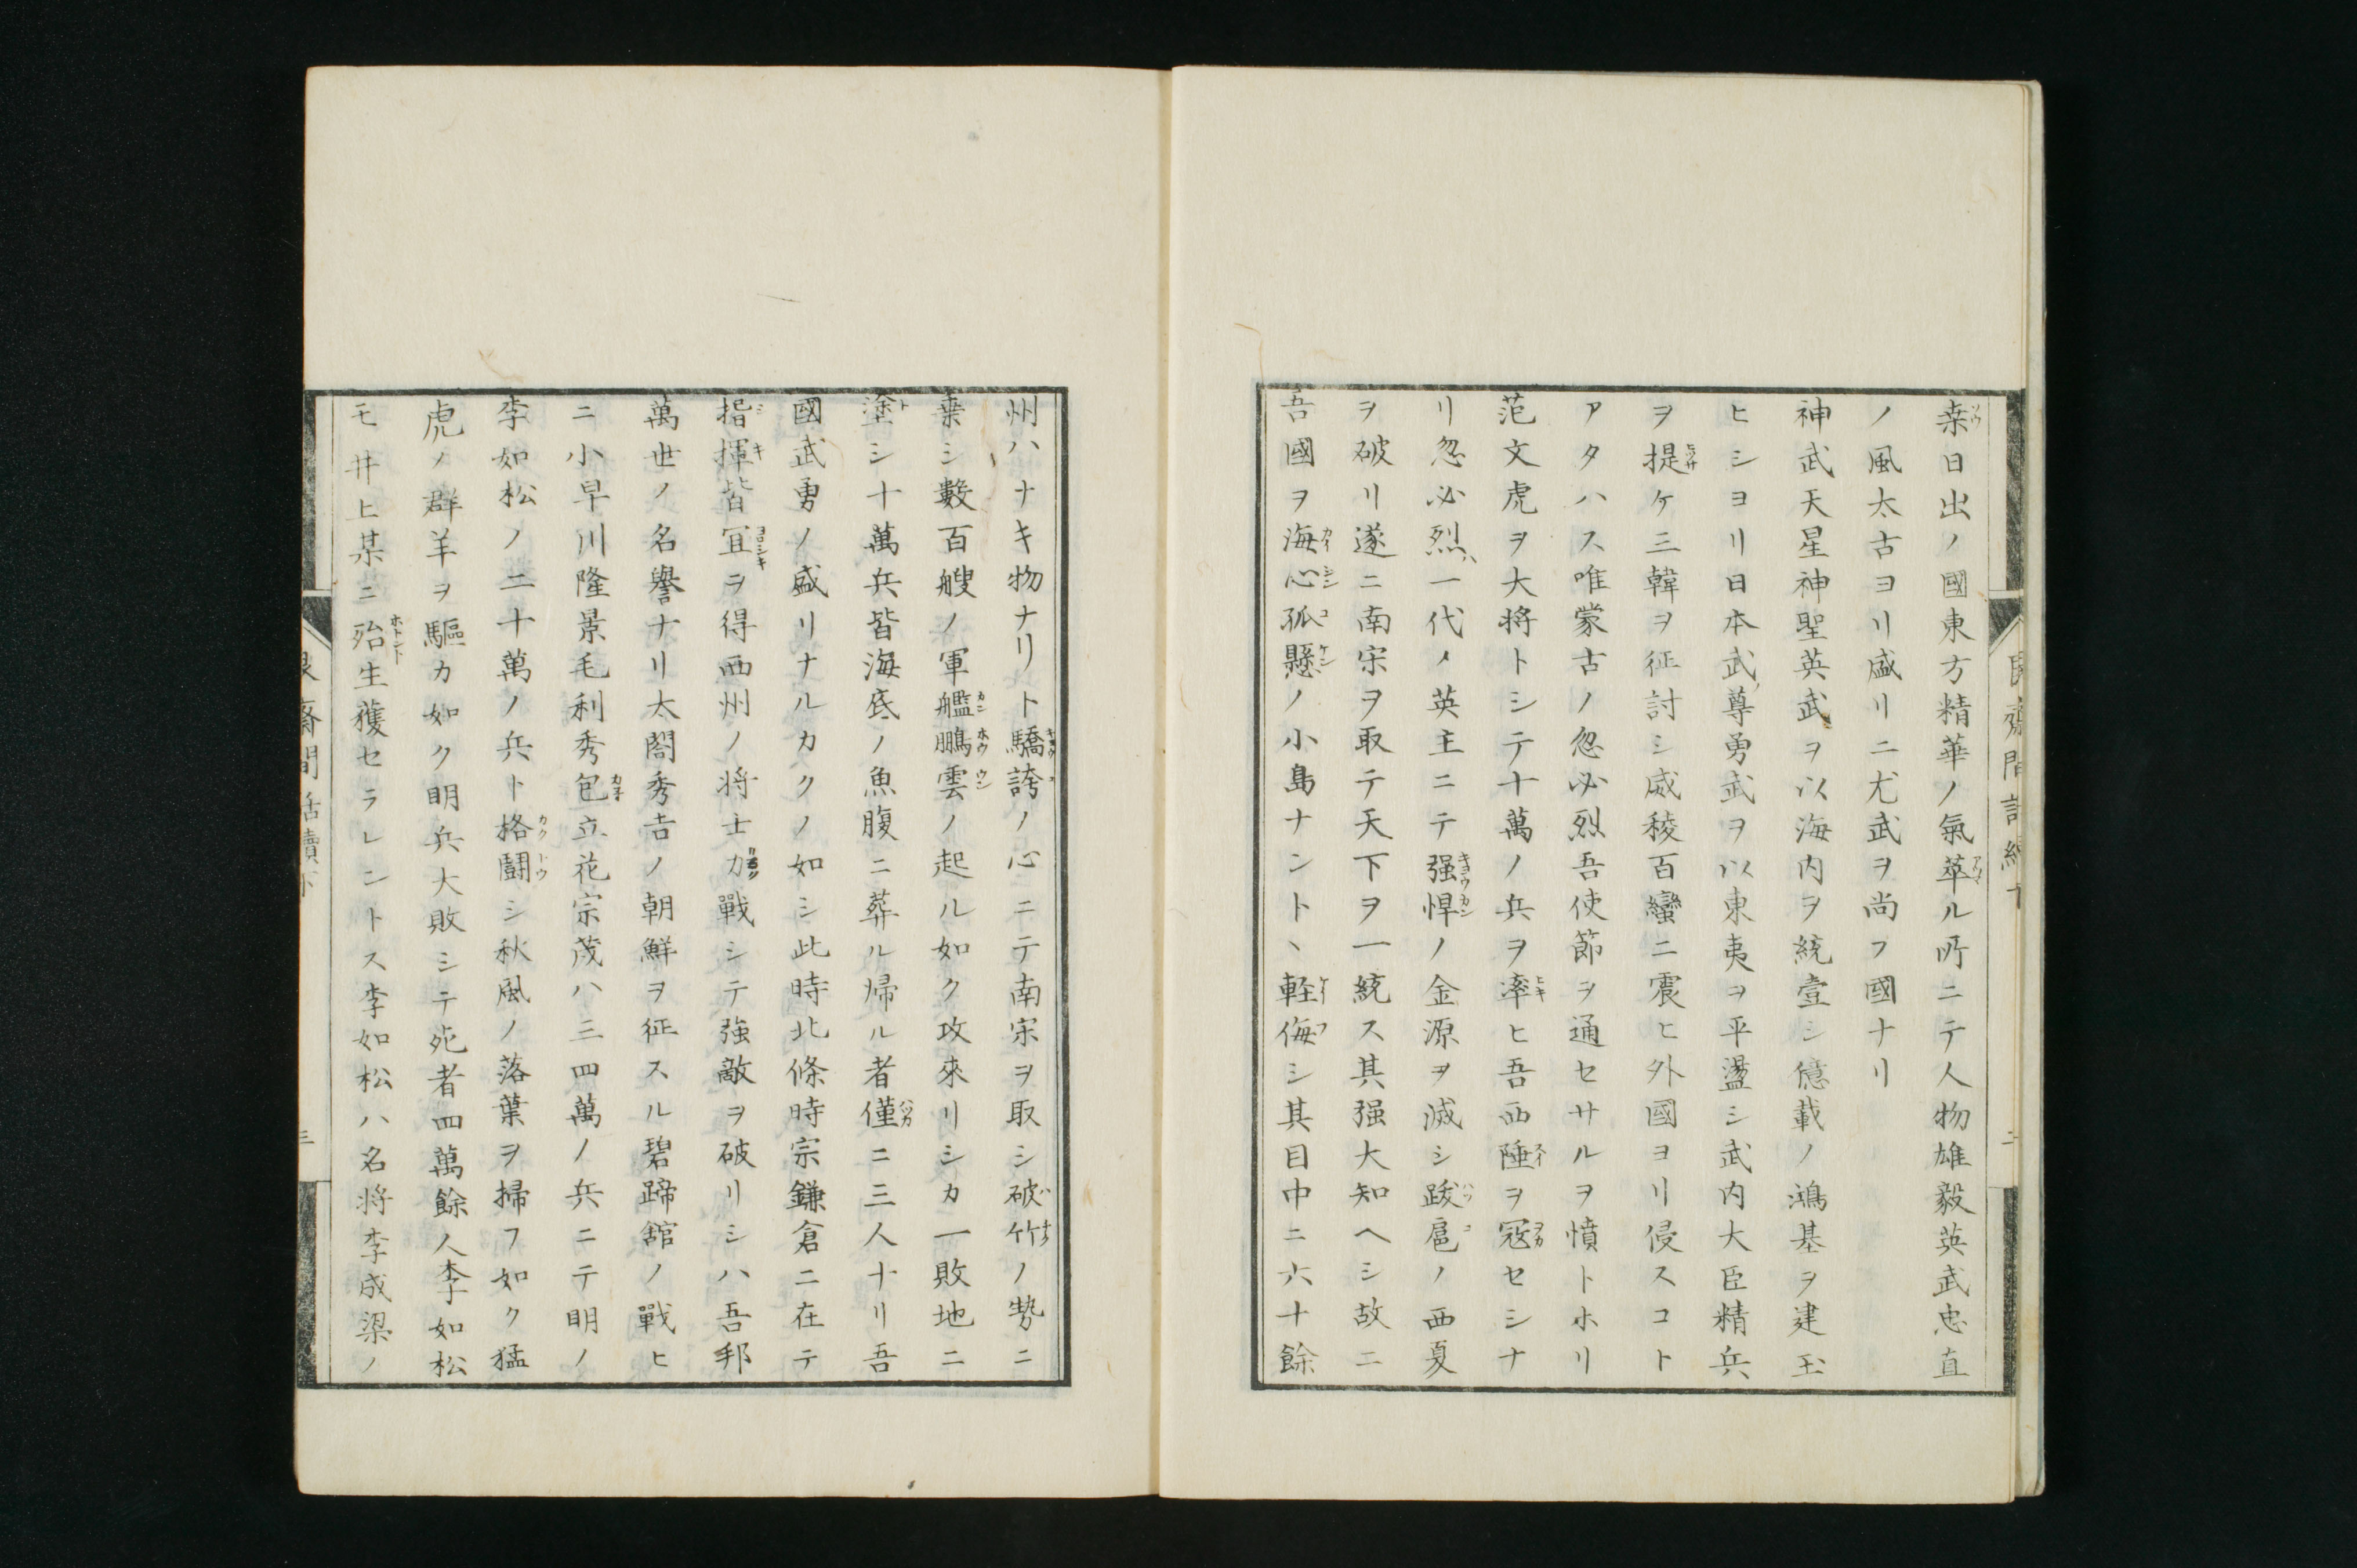 桒日出ノ國東方精華ノ氣萃ル所ニテ人物雄毅英武忠直
ノ風太古ヨリ盛リニ尤武ヲ尚フ國ナリ
神武天星神聖英武ヲ以海内ヲ統壹シ億載ノ鴻基ヲ建玉
ヒシヨリ日本武尊勇武ヲ以東夷ヲ平盪シ武内大臣精兵
ヲ提ケ三韓ヲ征討シ威稜百蠻ニ震ヒ外國ヨリ侵スコト
アタハス唯蒙古ノ忽必烈吾使節ヲ通セサルヲ憤トホリ
范文虎ヲ大将トシテ十萬ノ兵ヲ率ヒ吾西陲ヲ冦セシナ
リ忽必烈ハ一代ノ英主ニテ强悍ノ金源ヲ滅シ跋扈ノ西夏
ヲ破リ遂ニ南宋ヲ取テ天下ヲ一統ス其强大知ヘシ故ニ
吾國ヲ海心孤懸ノ小島ナントヽ軽侮シ其目中ニ六十餘
州ハナキ物ナリト驕誇ノ心ニテ南宋ヲ取シ破竹ノ勢ニ
乗シ數百艘ノ軍艦鵬雲ノ起ル如ク攻來リシカ一敗地ニ
塗シ十萬兵皆海底ノ魚腹ニ葬ル帰ル者僅ニ三人ナリ吾
國武勇ノ盛リナルカクノ如シ此時北條時宗鎌倉ニ在テ
指揮皆冝ヲ得西州ノ将士力戰シテ強敵ヲ破リシハ吾邦
萬世ノ名譽ナリ太閤秀吉ノ朝鮮ヲ征スル碧蹄舘ノ戰ヒ
ニ小早川隆景毛利秀包立花宗茂ハ三四萬ノ兵ニテ明ノ
李如松ノ二十萬ノ兵ト格鬪シ秋風ノ落葉ヲ掃フ如ク猛
虎ノ群羊ヲ驅カ如ク明兵大敗シテ死者四萬餘人李如松
モ井上某ニ殆生獲セラレントス李如松ハ名将李成梁ノ